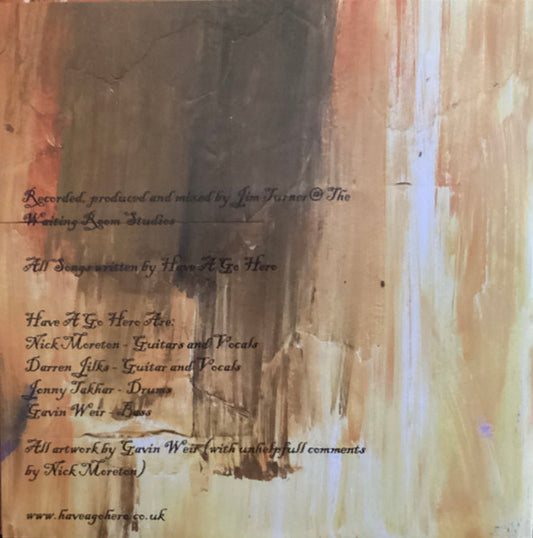 Recorded, produced and mixed by Jim Turner @ The
Waiting Room Studios
All Songs written by Have A Go Hero
Have A Go Hero Are:
Nick Moreton - Guitars and Vocals
Darren Jilks - Guitar and Vocals
Jonny Takhar - Drums
Gavin Weir - Bass
All artwork by Gavin Weir (with unhelpfull comments
by Nick Moreton)
www.haveagohero.co.uk